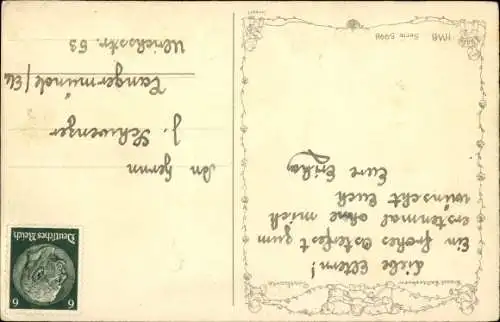 Liebe Eltern!
Ein frohes Osterfest zum
erstenmal ohne mich
wünscht Euch
Eure Erika
HWB Serie 5998
An Herrn
J. Schwenzer
Tangermünde/Elbe
Ulrichsstr. 53
Deutsches Reich
6 6